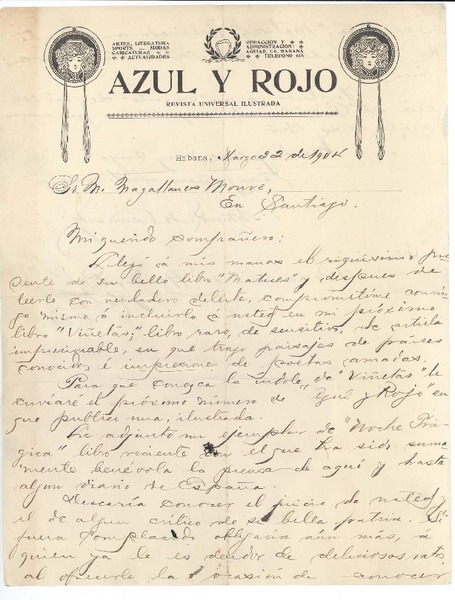 ARTES, LITERATURA
SPORTS — MODAS
CARICATURAS
ACTUALIDADES
REDACCION Y
ADMINISTRACION:
AGUIAR, HABANA
TELEFONO
AZUL Y ROJO
REVISTA UNIVERSAL ILUSTRADA
Habana, Marzo 22 de 1904
Sr. M. Magallanes Moure,
En Santiago.
Mi querido compañero:
Llegó á mis manos el riquisimo pre
sente de su bello libro "Matices" y despues de
leerlo con verdadero deleite, comprometíme conmi
go mismo á incluirlo á usted en mi próximo
libro "Viñetas," libro raro, de sensitivo, de artista
impresionable, en que trazo paisajes de paises
conocidos é impresiones de poetas amados.
Para que conozca la indole de "Viñetas" le
enviaré el próximo número de "Azul y Rojo" en
que publico una, ilustrada.
Le adjunto un ejemplar de "Noche Trá
gica" libro reciente con el que ha sido suma
mente benévola la prensa de aquí y hasta
algun diario de España.
Desearía conocer el juicio de usted y
el de algun crítico de su bella patria. Si
fuera complacido obligaría aún más, á
quien ya le es deudor de deliciosos ratos,
al ofrecerle la ocasión de conocer